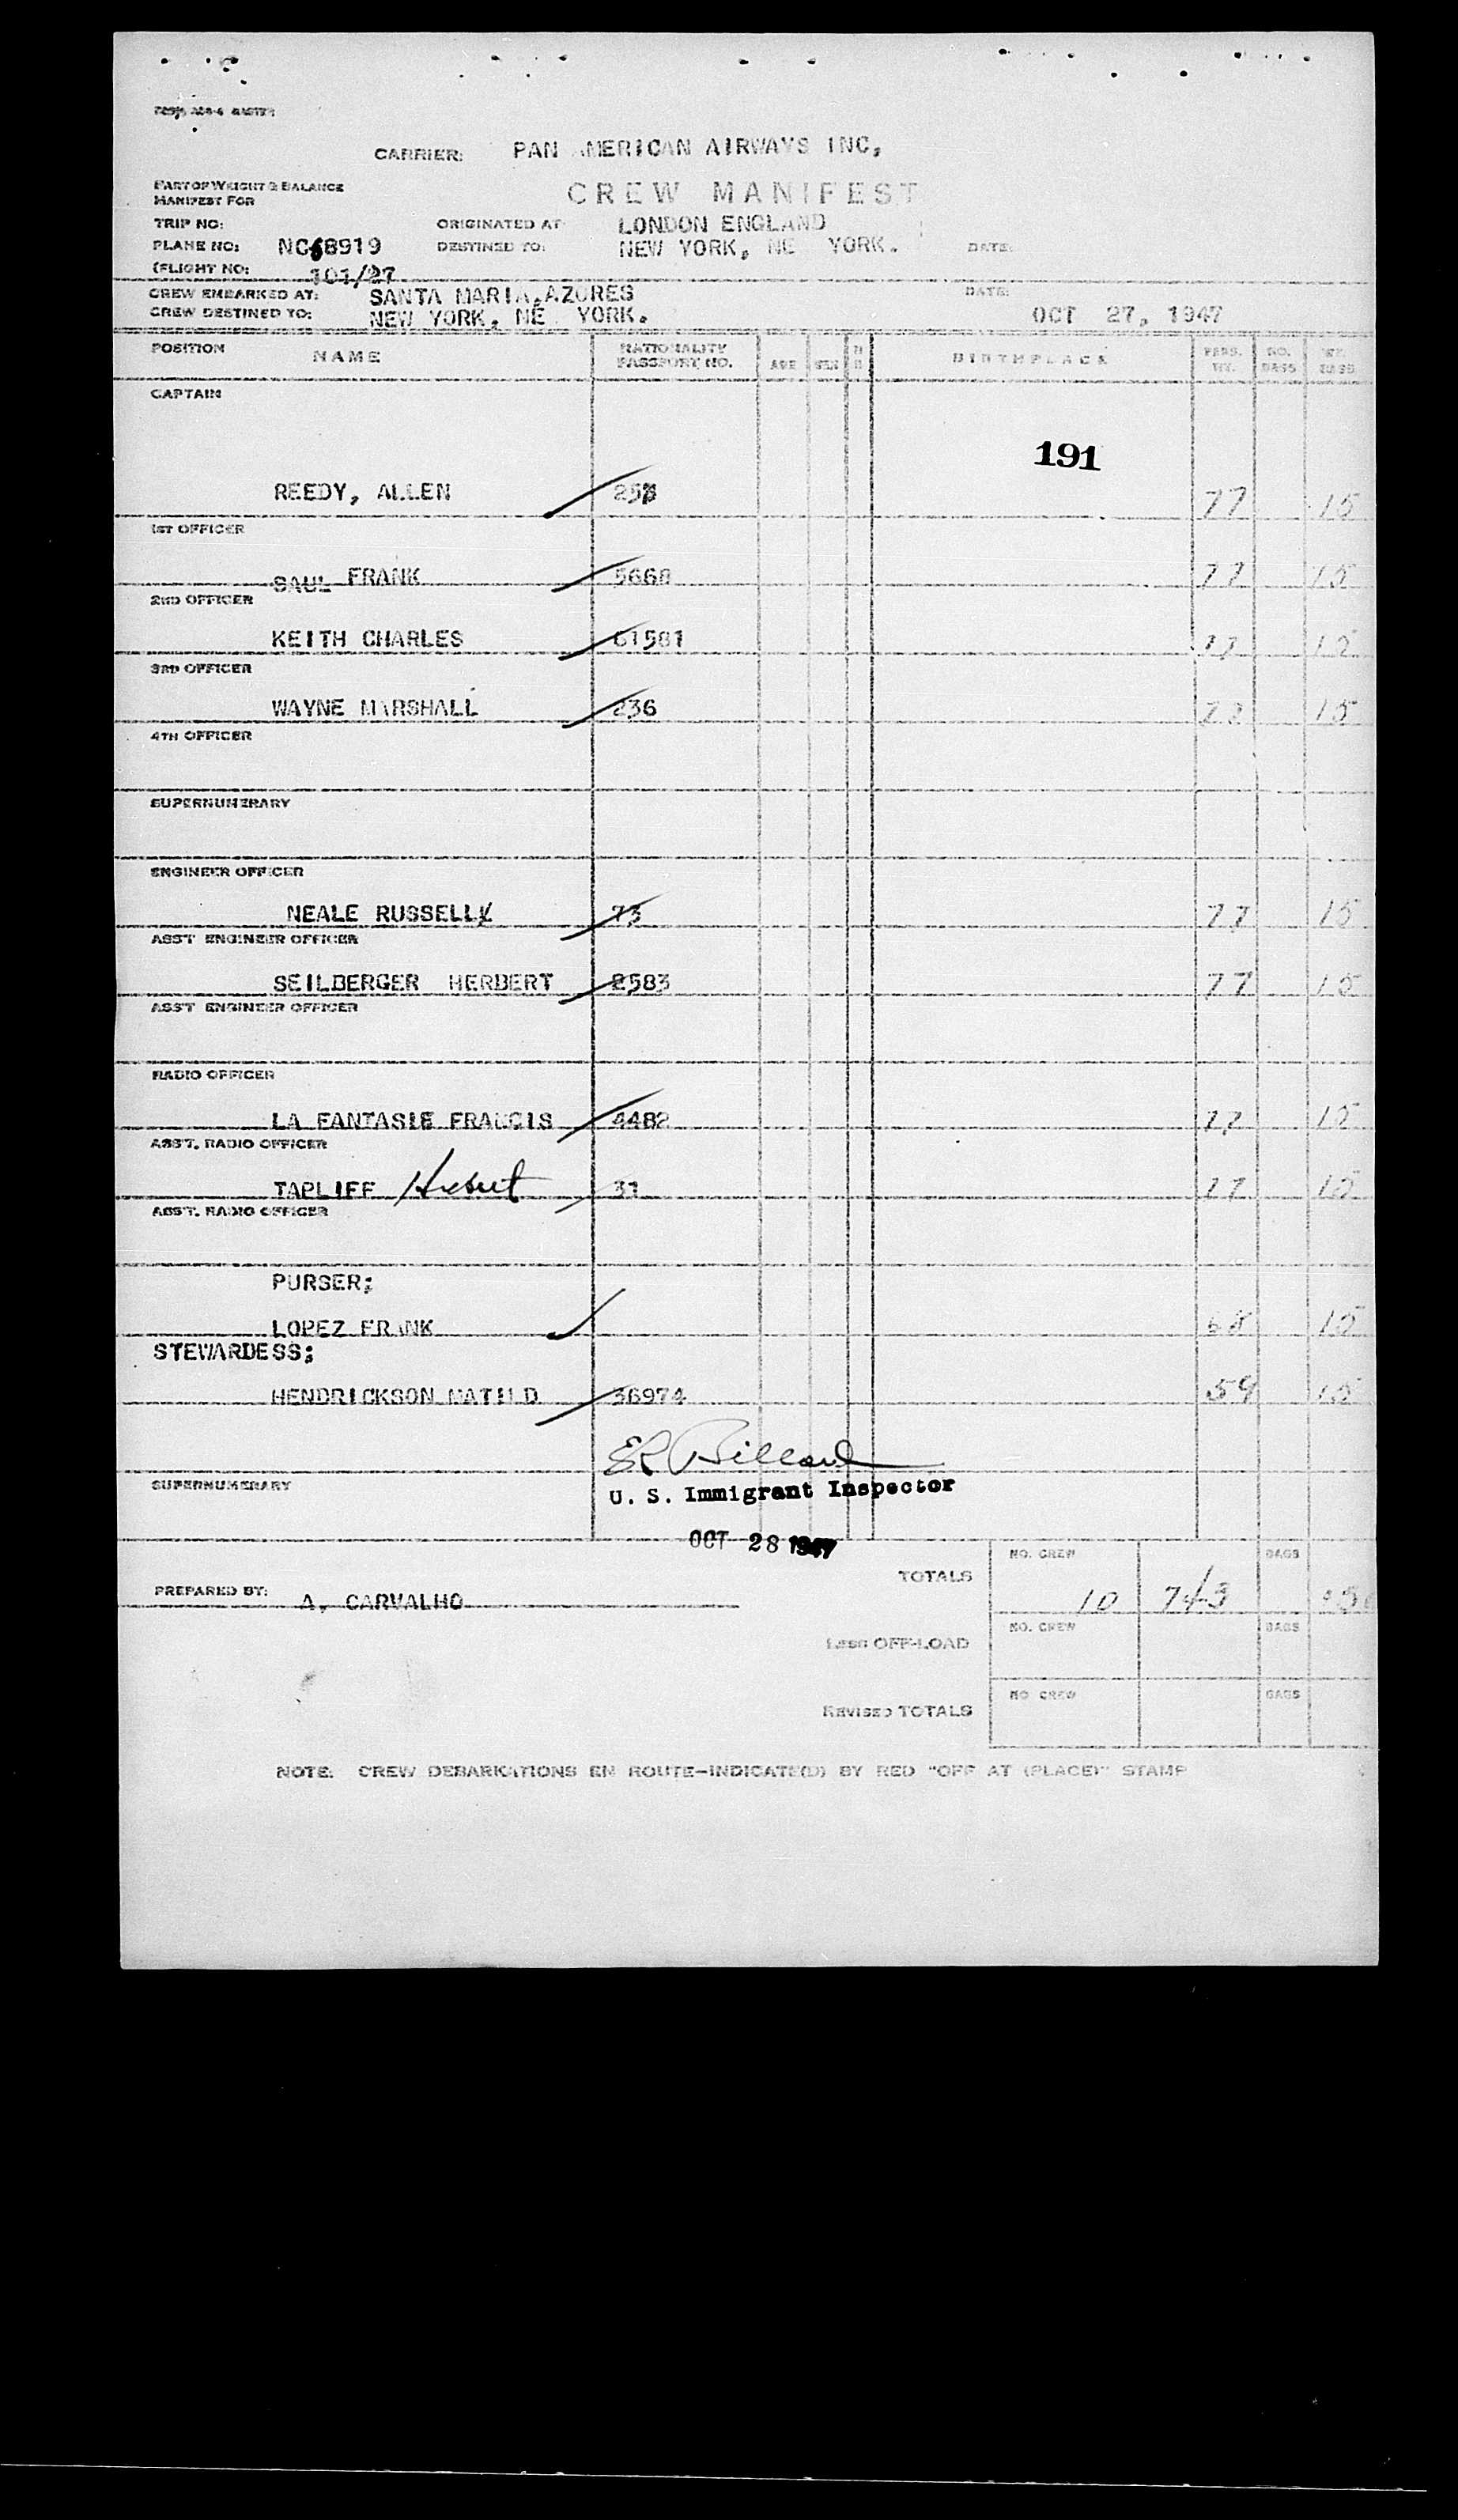 CARRIER: PAN AMERICAN AIRWAYS INC,
PART OF WEIGHT & BALANCE
MANIFEST FOR
CREW MANIFEST
TRIP NO: ORIGINATED AT LONDON ENGLAND
PLANE NO: NC68919 DESTINED TO: NEW YORK, NE YORK. DATE:
(FLIGHT NO: 101/27
CREW EMBARKED AT: SANTA MARIA, AZORES DATE:
CREW DESTINED TO: NEW YORK, NE YORK. OCT 27, 1947
POSITION NAME NATIONALITY PASSPORT NO. AGE SEX BIRTHPLACE PERS. WT. NO. BAGS WT. BAGS
CAPTAIN
191
REEDY, ALLEN 77 15
1ST OFFICER
SAUL FRANK 5668 77 15
2ND OFFICER
KEITH CHARLES 61581 77 15
3RD OFFICER
WAYNE MARSHALL 236 15
4TH OFFICER
SUPERNUMERARY
ENGINEER OFFICER
NEALE RUSSELL 73 77 15
ASST ENGINEER OFFICER
SEILBERGER HERBERT 2583 77 15
ASST ENGINEER OFFICER
RADIO OFFICER
LA FANTASIE FRANCIS 4482 77 15
ASST. RADIO OFFICER
TAPLIFF 31 77 15
ASST. RADIO OFFICER
PURSER;
LOPEZ FRANK 68 15
STEWARDESS;
HENDRICKSON MATILD 36974 59 15
SUPERNUMERARY
U. S. Immigrant Inspector
OCT 28 1947
TOTALS NO. CREW 10 743 BAGS
PREPARED BY: A. CARVALHO
LESS OFF-LOAD NO. CREW BAGS
REVISED TOTALS NO CREW BAGS
NOTE: CREW DEBARKATIONS EN ROUTE-INDICATE(D) BY RED "OFF AT (PLACE)" STAMP